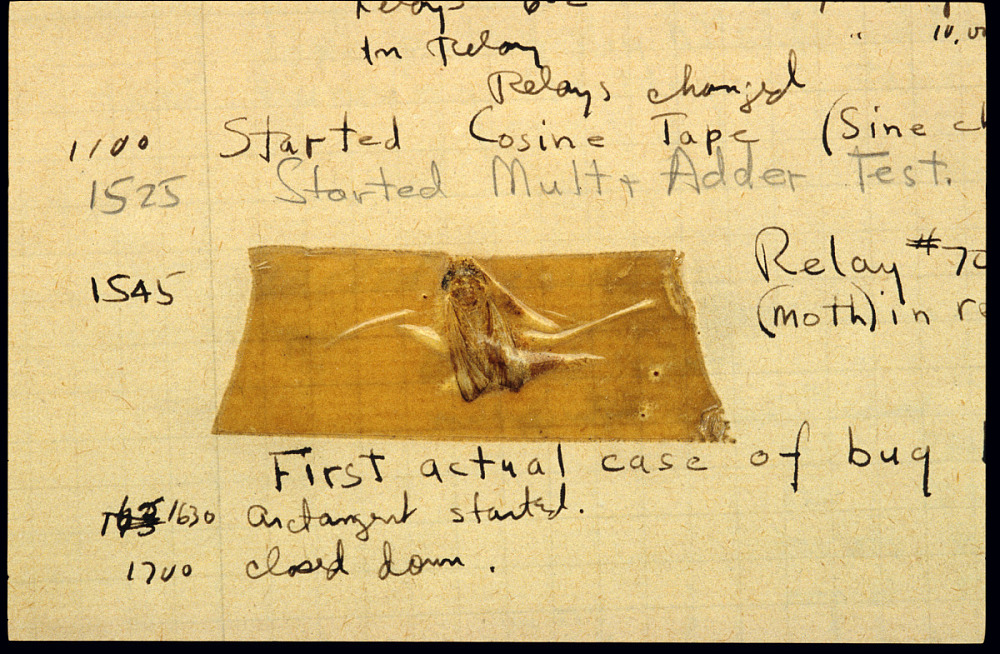 Relays
10,00
In Relay
Relays changed
1100 Started Cosine Tape (Sine ch
1525 Started Mult+ Adder Test.
1545 Relay #70
(moth) in re
First actual case of bug
1630 arctangent started.
1700 closed down.